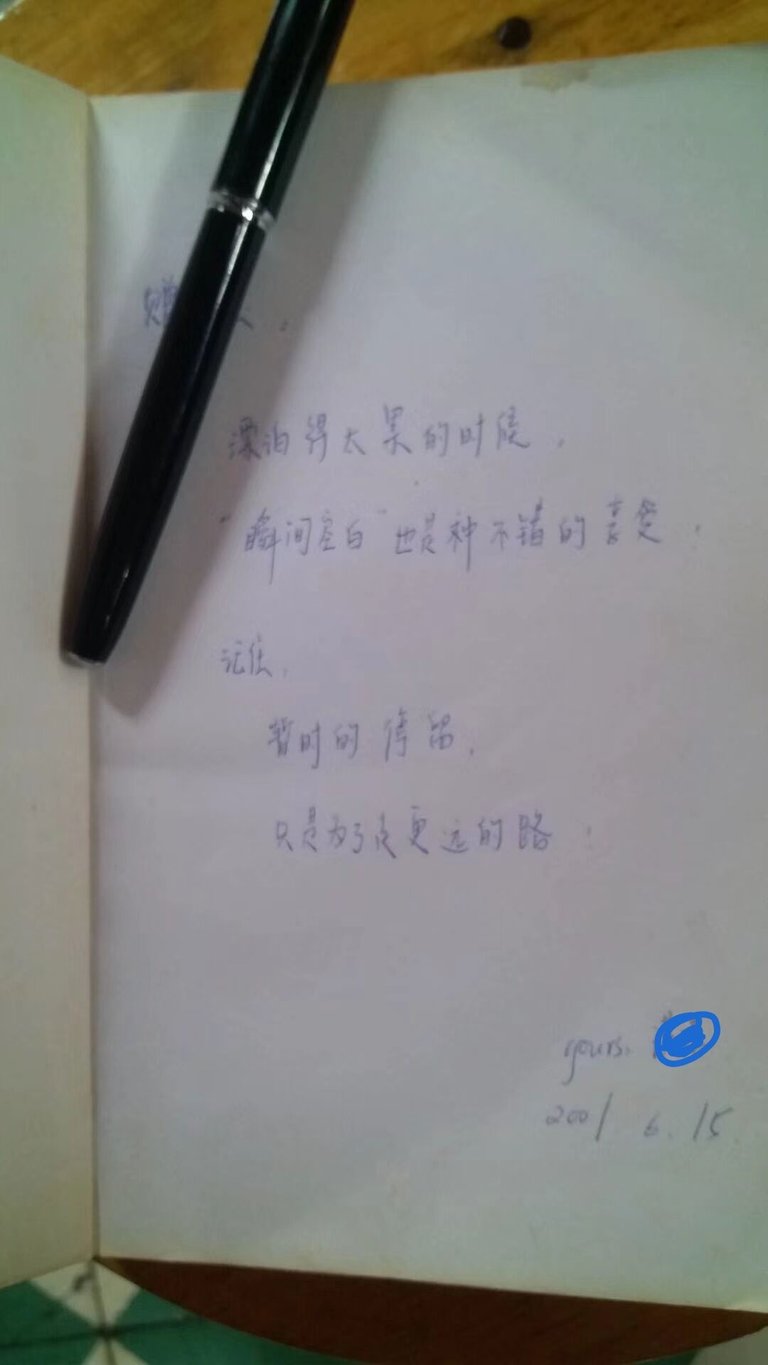 赠
漂泊得太累的时候，
“瞬间空白”也是种不错的享受．
记住，
暂时的停留，
只是为了走更远的路．
yours.
2001 6. 15